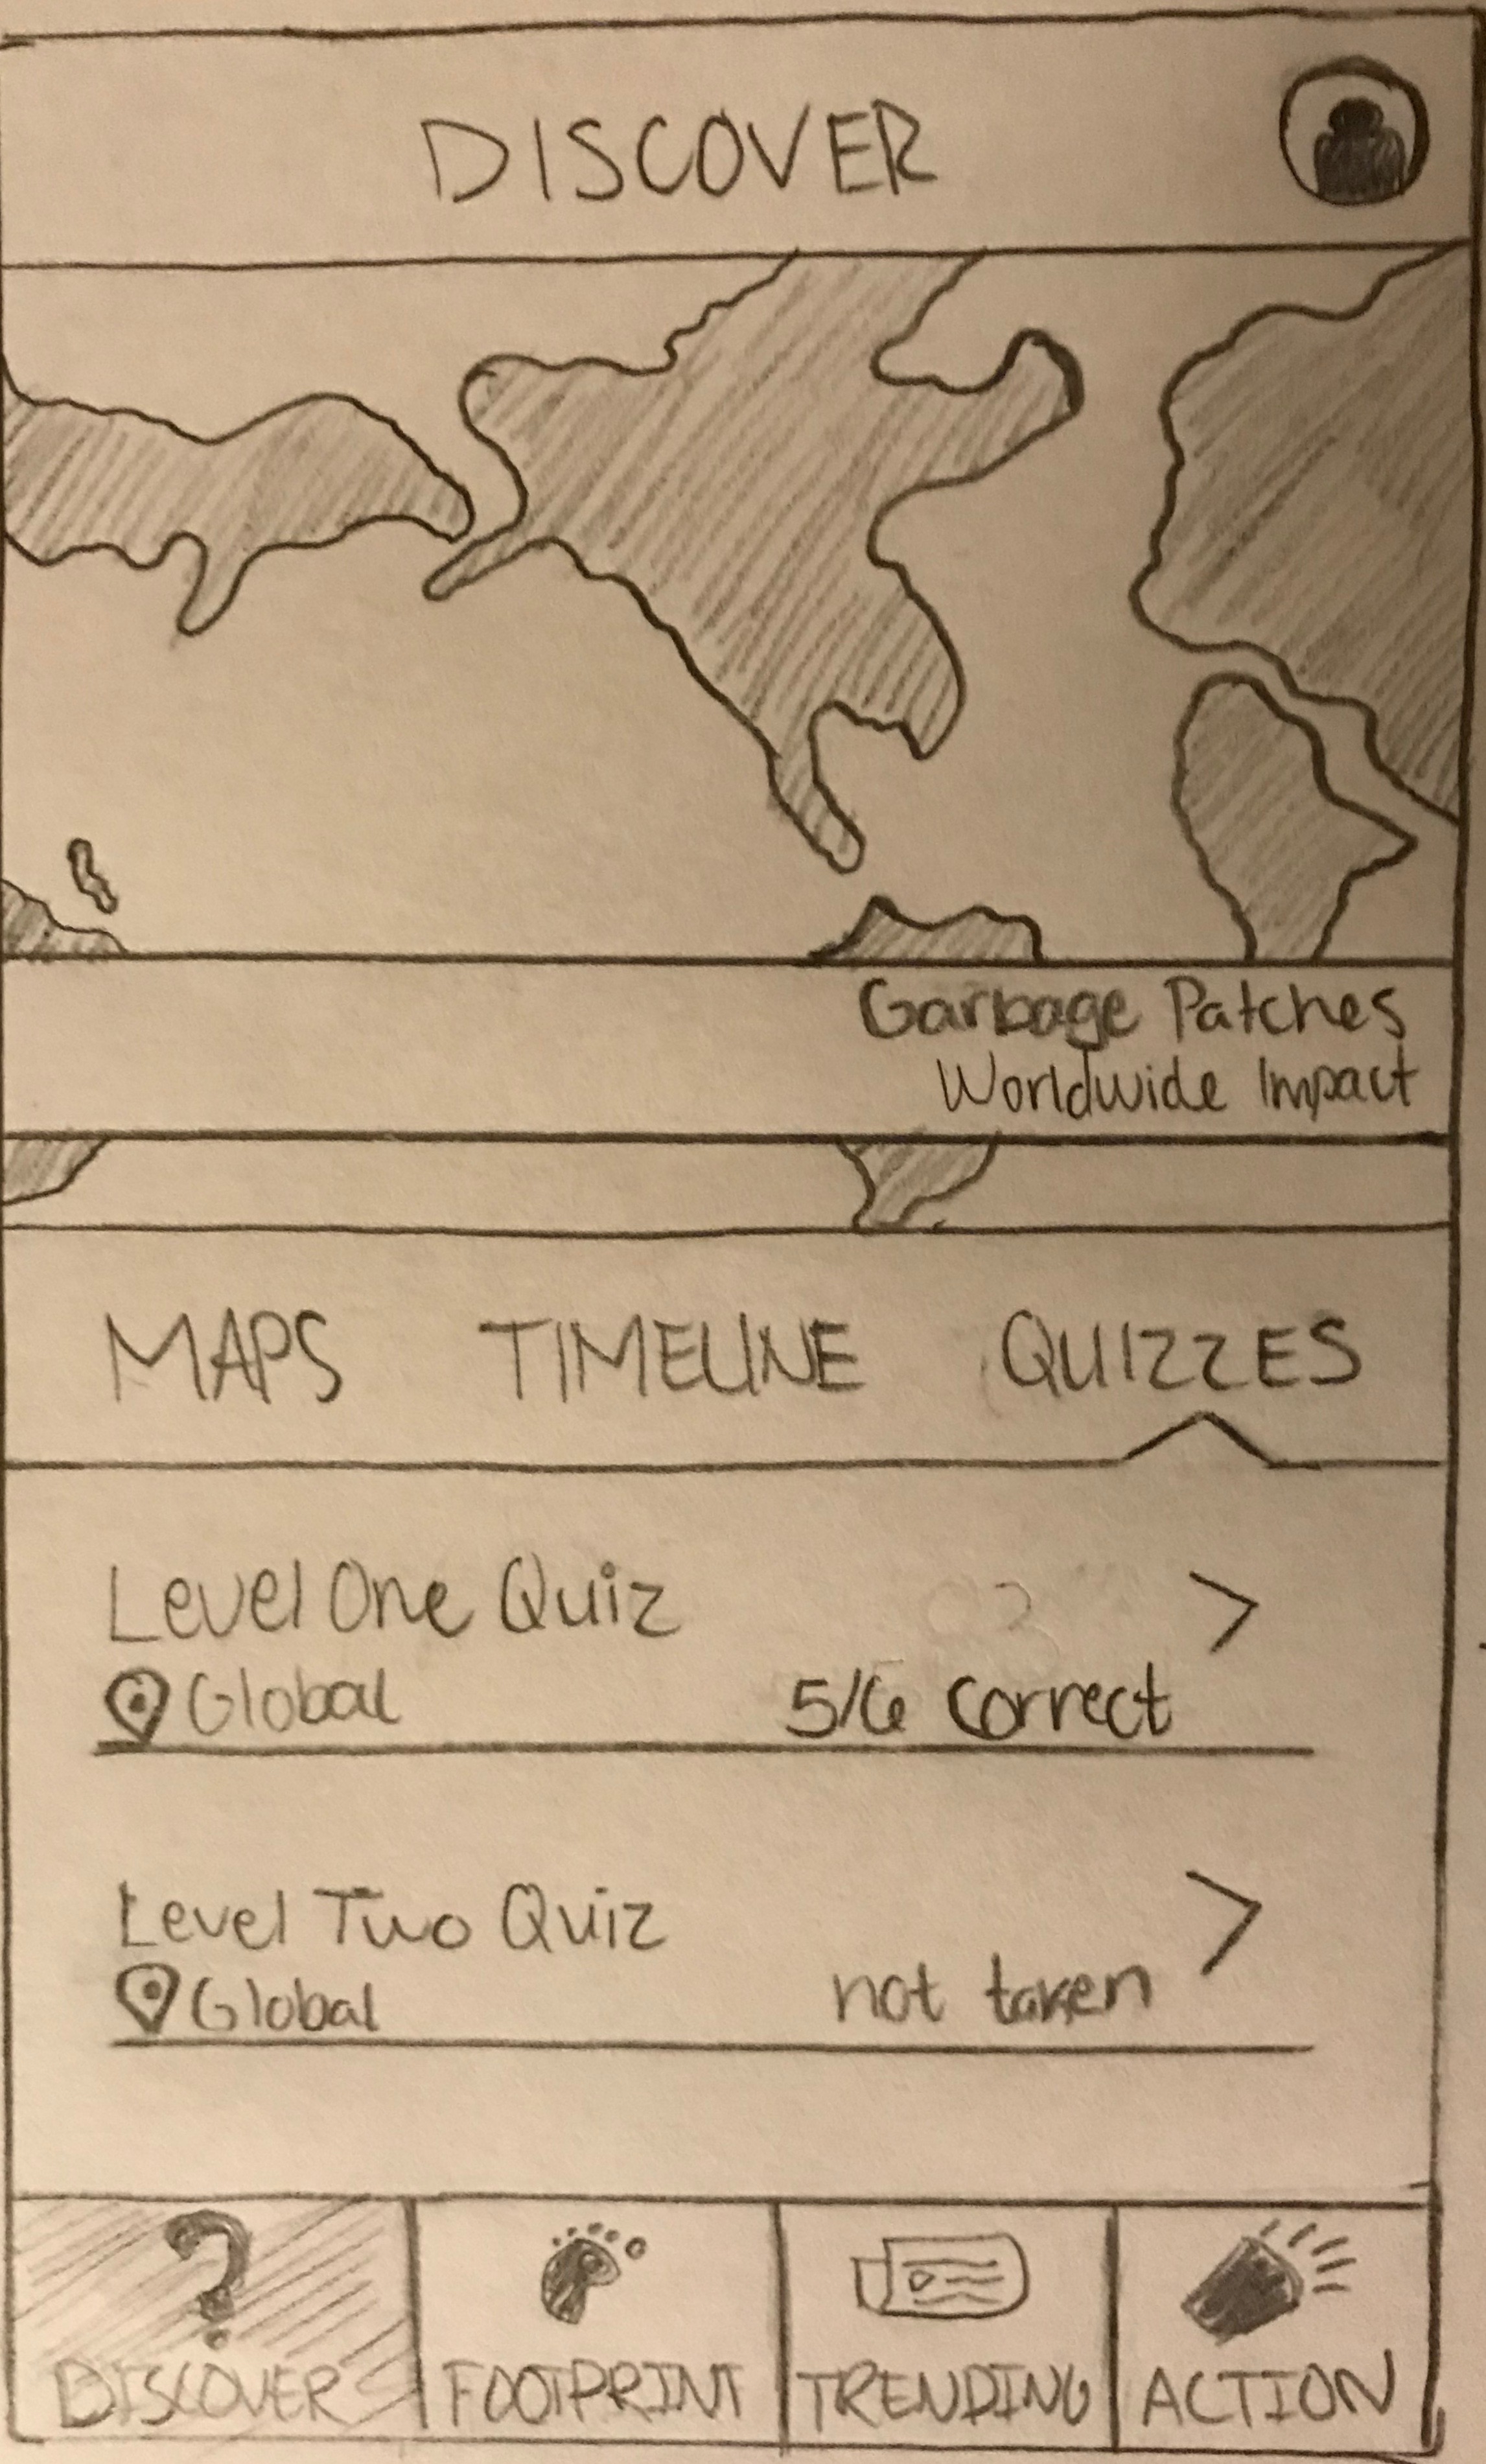 DISCOVER
Garbage Patches
Worldwide Impact
MAPS TIMELINE QUIZZES
Level One Quiz >
Global 5/6 correct
Level Two Quiz >
Global not taken
?
DISCOVER FOOTPRINT TRENDING ACTION